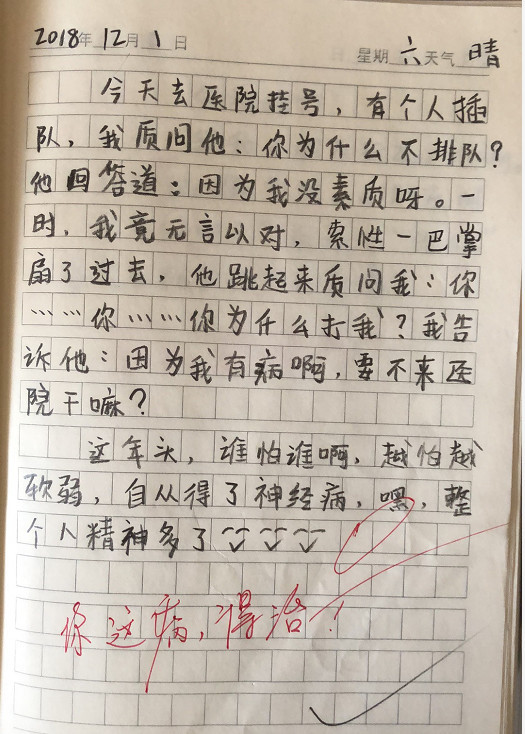 2018年12月1日 星期六天气晴
今天去医院挂号，有个人插
队，我质问他：你为什么不排队？
他回答道：因为我没素质呀。一
时，我竟无言以对，索性一巴掌
扇了过去，他跳起来质问我：你
……你……你为什么打我？我告
诉他：因为我有病啊，要不来医
院干嘛？
这年头，谁怕谁啊，越怕越
软弱，自从得了神经病，嘿，整
个人精神多了
你这病，得治！